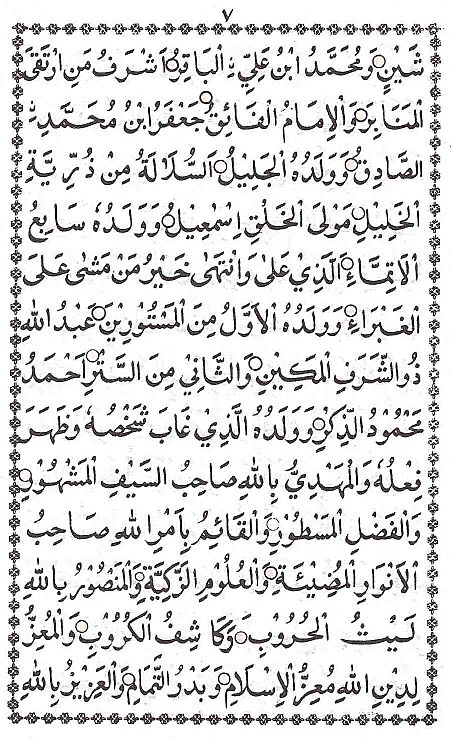 ٧
شَيْنٍ ○ وَمُحَمَّدُ ابْنُ عَلِيٍّ ࣙ الْبَاقِرُ ○ اَشْرَفُ مَنِ ارْتَقَى
الْمَنَابِرَ ○ وَالْاِمَامُ الْفَائِقُ ○ جَعْفَرُ ابْنُ مُحَمَّدِ ࣙ
الصَّادِقُ ○ وَوَلَدُهُ الْجَلِيْلُ ○ اَلسُّلَالَةُ مِنْ ذُرِّيَّةِ
الْخَلِيْلِ ○ مَوْلَى الْخَلْقِ اِسْمٰعِيْلُ ○ وَوَلَدُهٗ سَابِعُ
الْاَتِمَّاءِ ○ الَّذِيْ عَلٰى وَانْتَهٰى خَيْرُ مَنْ مَشٰى عَلَى
الْغَبْرَاءِ ○ وَوَلَدُهُ الْاَوَّلُ مِنَ الْمَسْتُوْرِيْنَ ○ عَبْدُ اللهِ
ذُو الشَّرَفِ الْمَكِيْنِ ○ وَالثَّانِيْ مِنَ السَّتْرِ ○ اَحْمَدُ
مَحْمُوْدُ الذِّكْرِ ○ وَوَلَدُهُ الَّذِيْ غَابَ شَخْصُهٗ وَظَهَرَ
فِعْلُهٗ وَالْمَهْدِيُّ بِاللهِ صَاحِبُ السَّيْفِ الْمَشْهُوْرِ ○
وَالْفَضْلِ الْمَسْطُوْرِ ○ وَالْقَائِمُ بِاَمْرِ اللهِ صَاحِبُ
الْاَنْوَارِ الْمُضِيْئَةِ ○ وَالْعُلُوْمِ الزَّكِيَّةِ ○ وَالْمَنْصُوْرُ بِاللهِ
لَيْثُ الْحُرُوْبِ ○ وَكَاشِفُ الْكُرُوْبِ ○ وَالْمُعِزُّ
لِدِيْنِ اللهِ مُعِزُّ الْاِسْلَامِ ○ وَبَدْرُ التَّمَامِ ○ وَالْعَزِيْزُ بِاللهِ